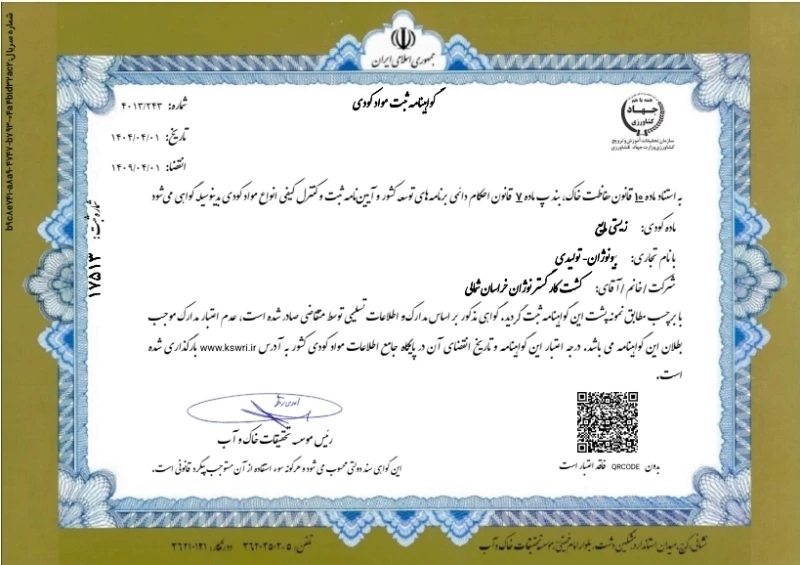 جمهوری اسلامی ایران
گواهینامه ثبت مواد کودی
همه با هم
جهاد
کشاورزی
سازمان تحقیقات، آموزش و ترویج
کشاورزی وزارت جهاد کشاورزی
شماره: ۴۰۱۳/۲۴۳
تاریخ: ۱۴۰۴/۰۴/۰۱
انقضا: ۱۴۰۹/۰۴/۰۱
شماره ثبت: ۱۷۵۱۳
به استناد ماده ۱۰ قانون حفاظت خاک، بند پ ماده ۷ قانون احکام دائمی برنامه های توسعه کشور و آیین نامه ثبت و کنترل کیفی انواع مواد کودی بدینوسیله گواهی می شود
ماده کودی: زیستی مایع
با نام تجاری: بیونوژان - تولیدی
شرکت / خانم / آقای: کشت کار گستر نوژان خراسان شمالی
با برچسب مطابق نمونه پشت این گواهینامه ثبت گردید. گواهی مذکور بر اساس مدارک و اطلاعات تسلیمی توسط متقاضی صادر شده است، عدم اعتبار مدارک موجب
بطلان این گواهینامه می باشد. درجه اعتبار این گواهینامه و تاریخ انقضای آن در پایگاه جامع اطلاعات مواد کودی کشور به آدرس www.kswri.ir بارگذاری شده
است.
رئیس موسسه تحقیقات خاک و آب
بدون QRCODE فاقد اعتبار است
این گواهی سند دولتی محسوب می شود و هرگونه سوء استفاده از آن مستوجب پیگرد قانونی است.
نشانی: کرج، میدان استاندارد، مشکین دشت، بلوار امام خمینی، موسسه تحقیقات خاک و آب
تلفن: ۵-۳۶۲۰۲۵۰۲ دورنگار: ۳۶۲۱۰۱۲۱
شماره سریال: